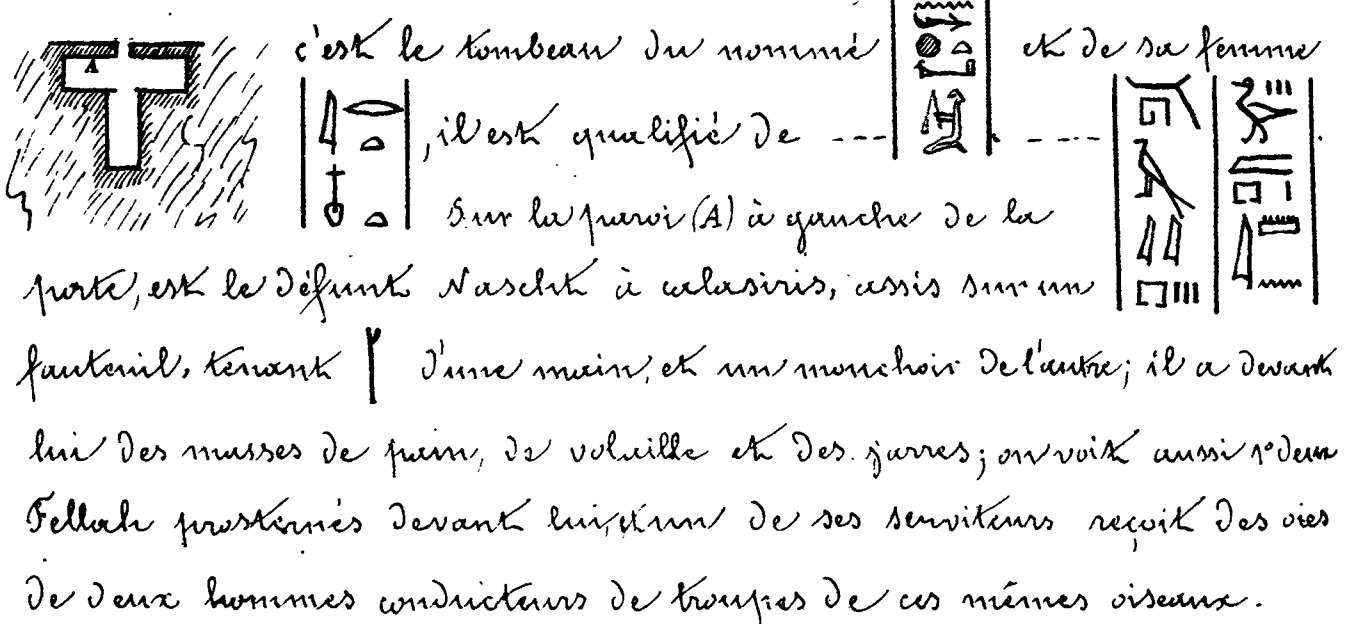 c'est le tombeau du nommé et de sa femme
A
, il est qualifié de --- . ----- .
Sur la paroi (A) à gauche de la
porte, est le défunt Nascht à calasiris, assis sur un
fauteuil, tenant d'une main, et un mouchoir de l'autre; il a devant
lui des masses de pain, de volaille et des jarres; on voit aussi 1° deux
Fellah prosternés devant lui, et un de ses serviteurs reçoit des oies
de deux hommes conducteurs de troupes de ces mêmes oiseaux.